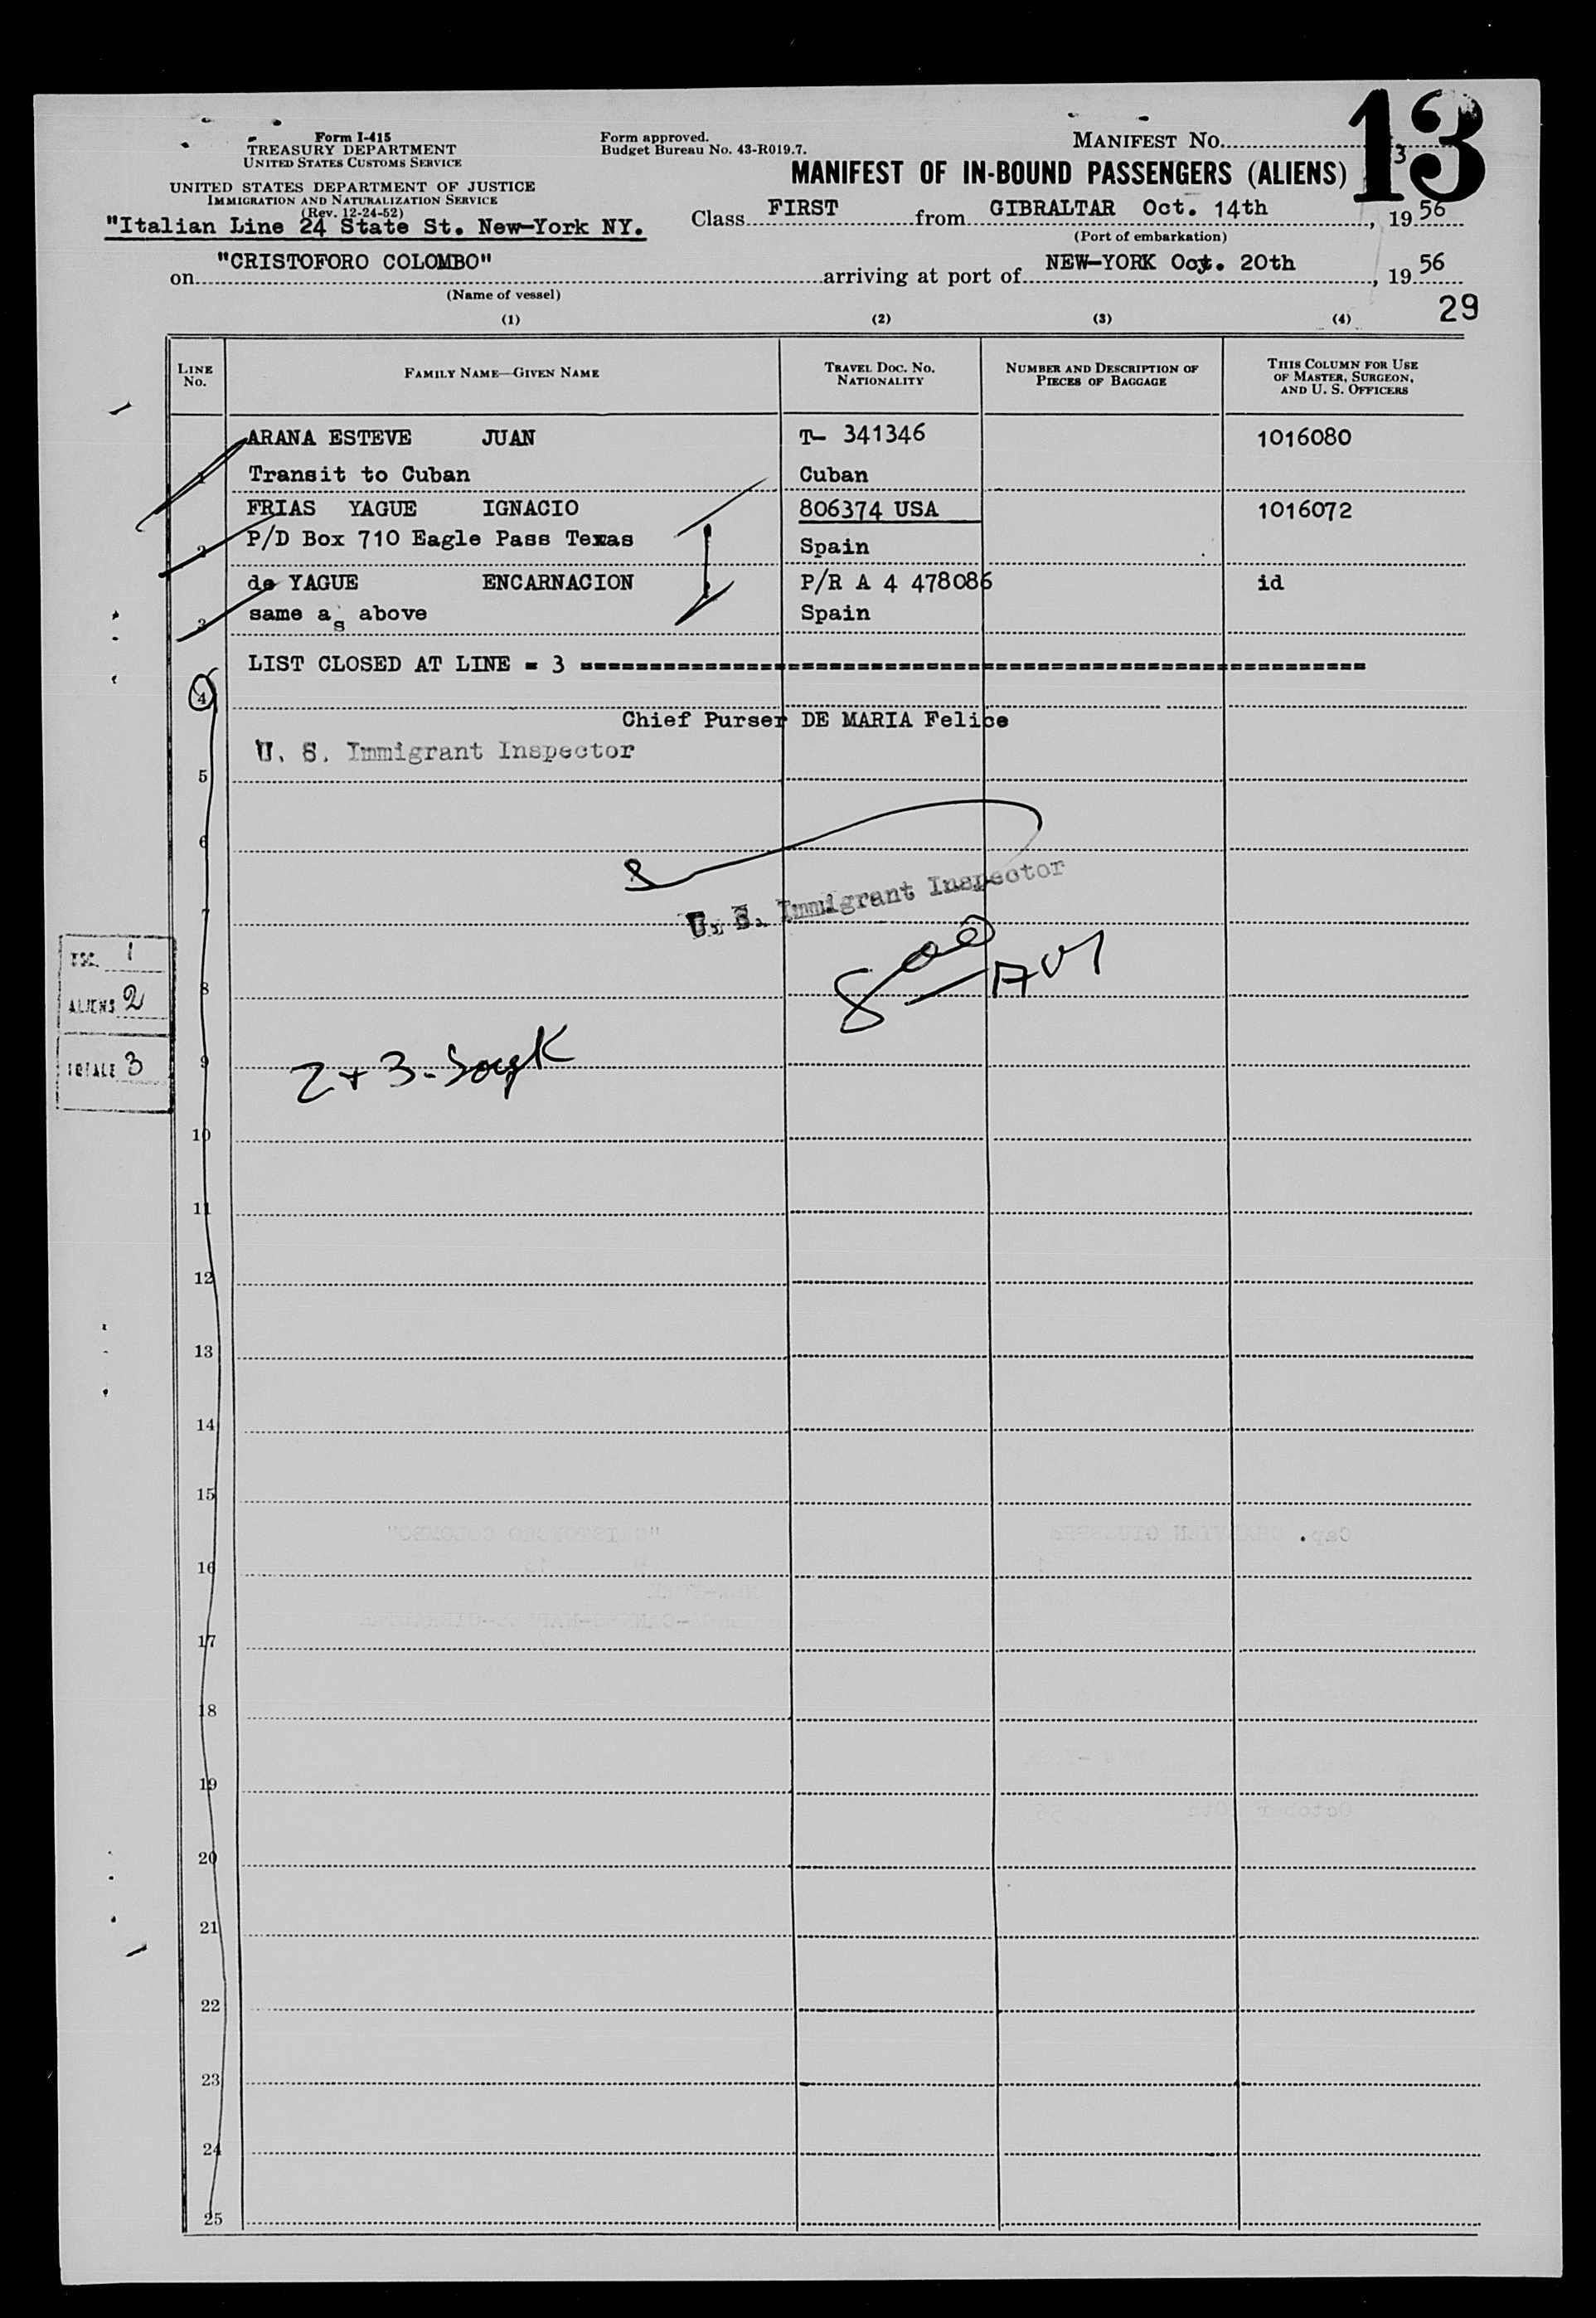 13
Form I-415
TREASURY DEPARTMENT
UNITED STATES CUSTOMS SERVICE
UNITED STATES DEPARTMENT OF JUSTICE
IMMIGRATION AND NATURALIZATION SERVICE
(Rev. 12-24-52)
Form approved.
Budget Bureau No. 43-R019.7.
MANIFEST NO. 3
MANIFEST OF IN-BOUND PASSENGERS (ALIENS)
"Italian Line 24 State St. New-York NY.
Class FIRST from GIBRALTAR Oct. 14th, 1956
(Port of embarkation)
on "CRISTOFORO COLOMBO" arriving at port of NEW-YORK Oct. 20th, 1956
(Name of vessel)
29
(1) (2) (3) (4)
LINE NO. FAMILY NAME—GIVEN NAME TRAVEL DOC. NO. NATIONALITY NUMBER AND DESCRIPTION OF PIECES OF BAGGAGE THIS COLUMN FOR USE OF MASTER, SURGEON, AND U. S. OFFICERS
ARANA ESTEVE JUAN T- 341346 1016080
1 Transit to Cuban Cuban
FRIAS YAGUE IGNACIO 806374 USA 1016072
2 P/D Box 710 Eagle Pass Texas Spain
de YAGUE ENCARNACION P/R A 4 478086 id
3 same as above Spain
LIST CLOSED AT LINE = 3 ==========================================================
4
Chief Purser DE MARIA Felice
U. S. Immigrant Inspector
5
6
U. S. Immigrant Inspector
7
USC. 1
ALIENS 2
TOTALE 3
8
9
2 + 3 -
10
11
12
13
14
15
16
17
18
19
20
21
22
23
24
25